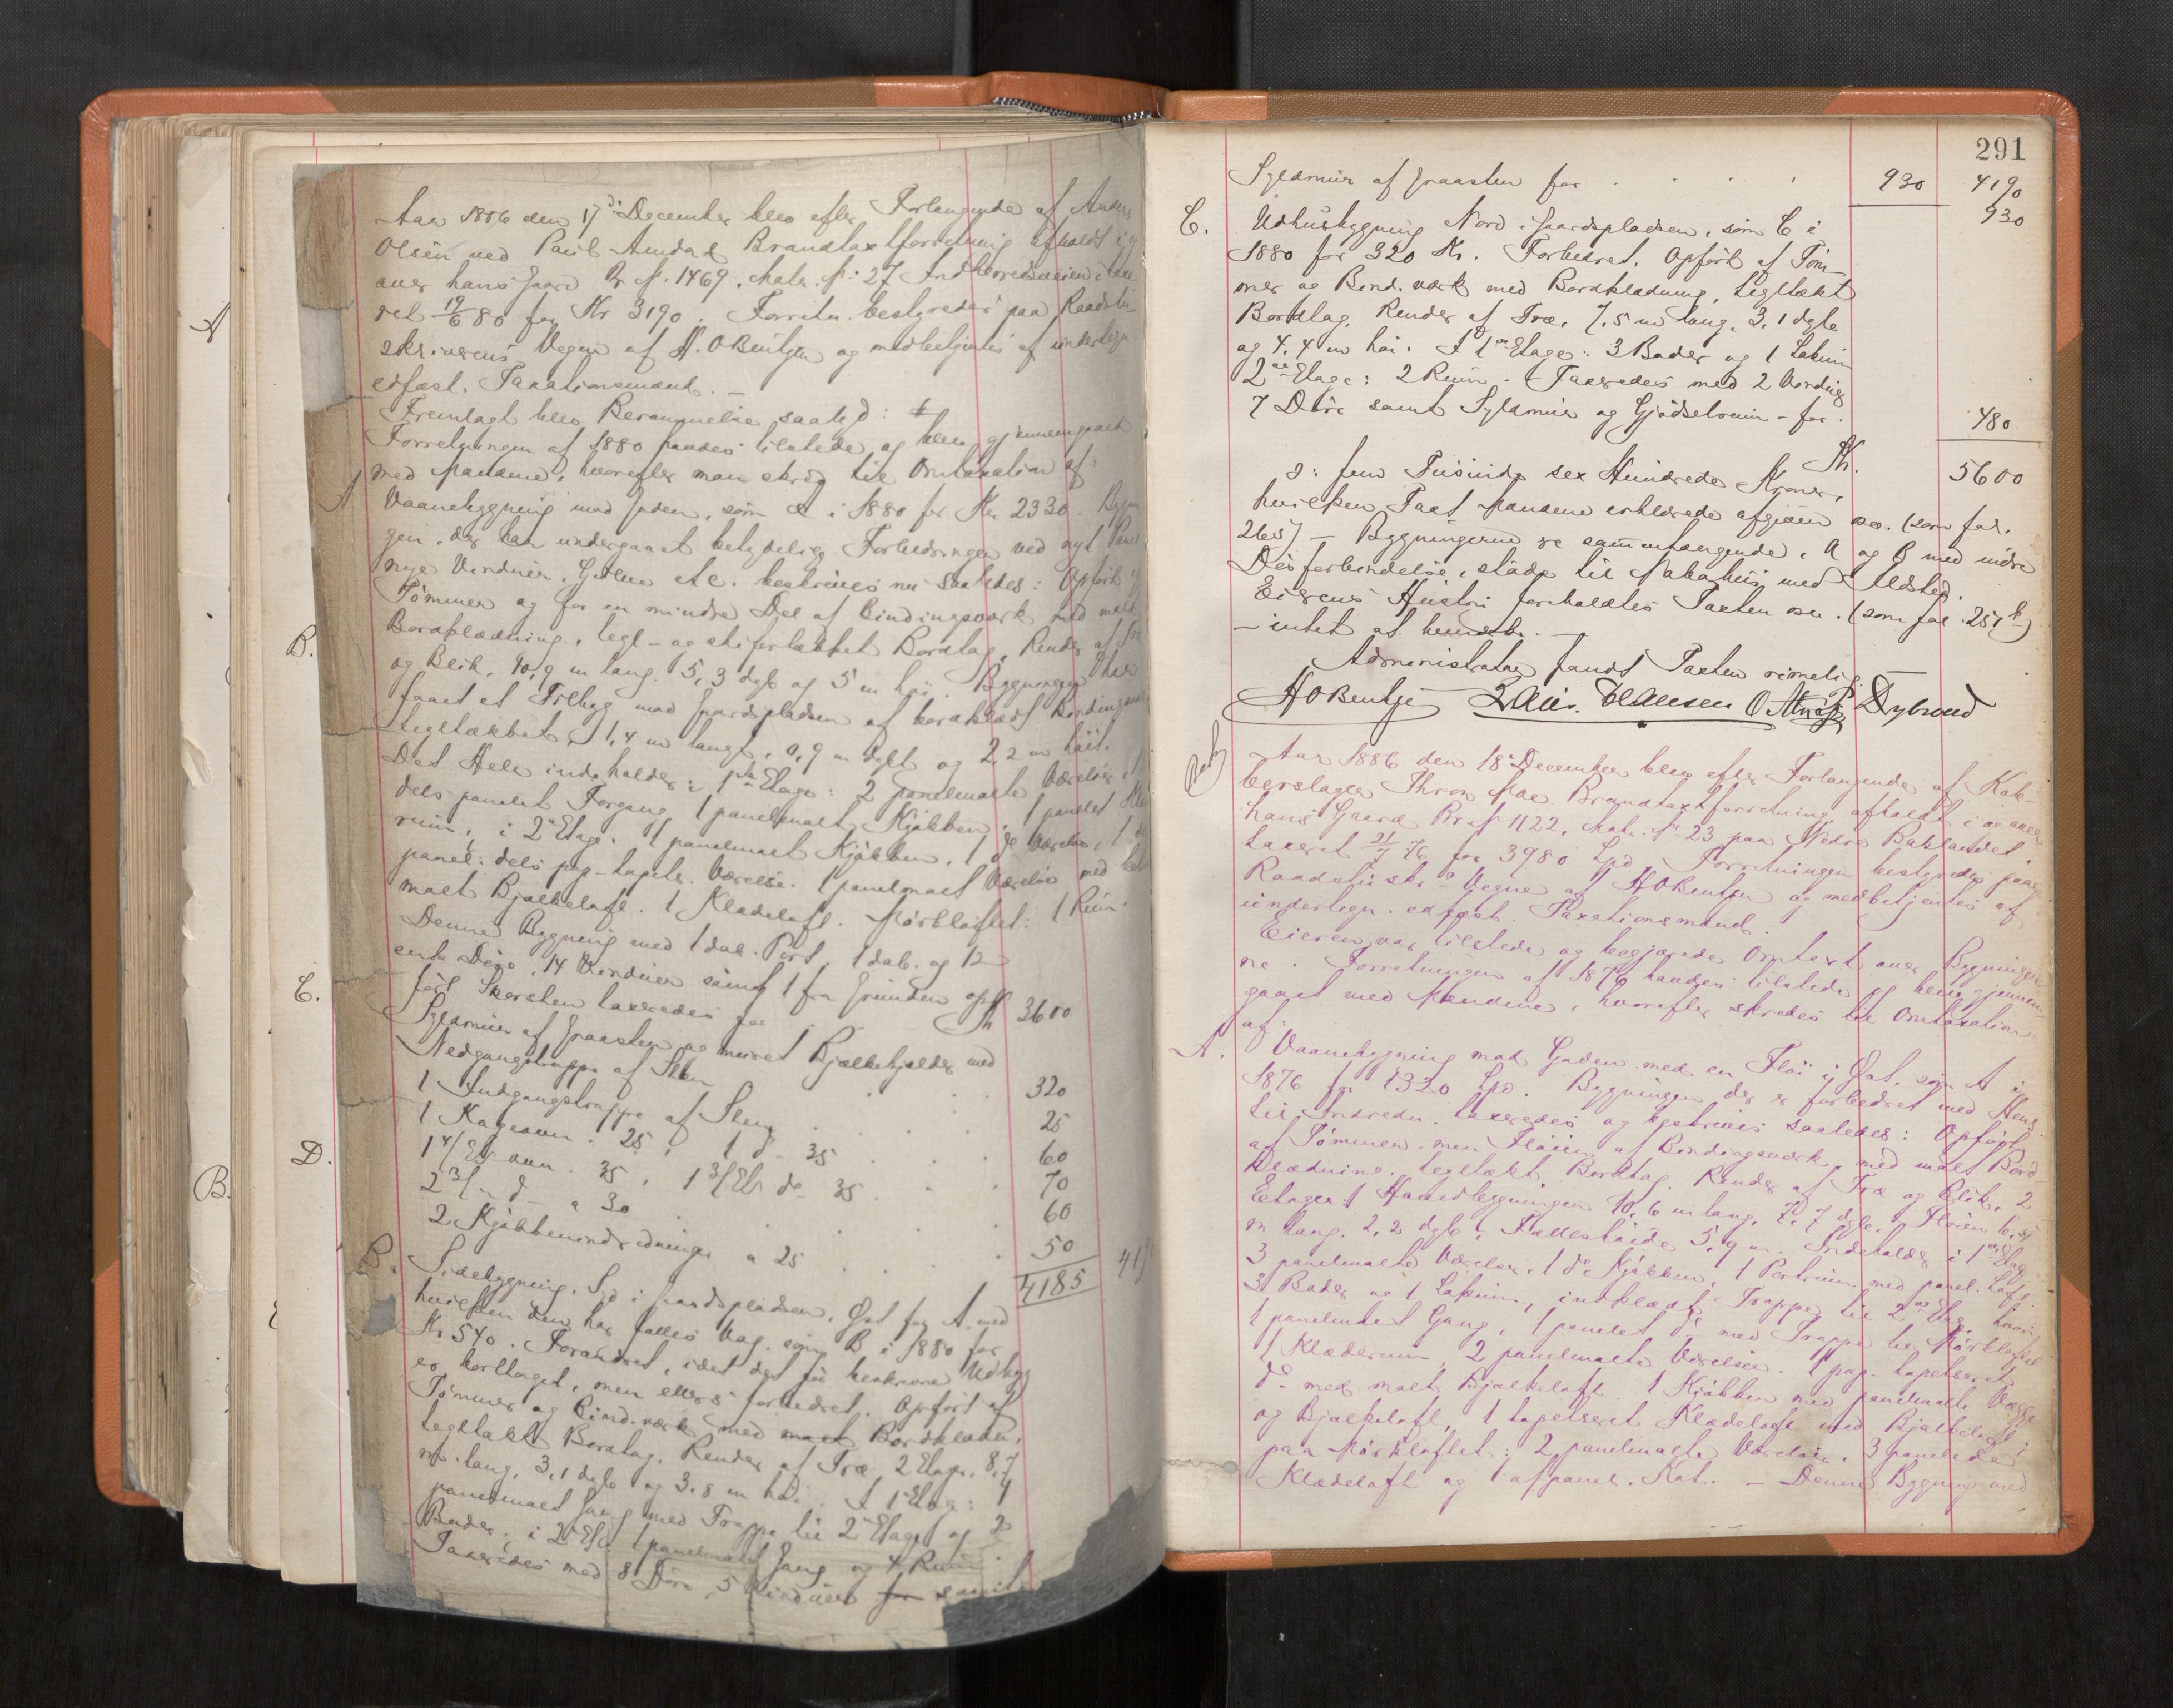 Aar 1886 den 17de December blev efter Forlangende af Anders
Olsen ved Paul Aundal Brandtaxtforretning afholdt i og
over hans Gaard Br. No. 1469, Matr. No. 27 Indherredsveien
ret 19/6 80 for Kr 3190. Forretn. bestyredes paa Raadstu-
skriverens Vegne af H. O Bentzen og medbetjentes af undertegn.
edfæst. Taxationsmænd. —
Fremlagt blev Berammelse saalyd:
Forretningen af 1880 havdes tilstede og blev gjennemgaaet
med Mændene, hvorefter man skred til Omtaxation af:
A. Vaanebygning mod Gaden, som A i 1880 for Kr. 2330. Bygnin
gen, der har undergaaet betydelige Forbedringer ved nyt Panel
nye Vinduer, Gulve etc. beskrives nu saaledes: Opført af
Tømmer og for en mindre Del af Bindingsværk med malt
Bordklædning, tegl- og skifertækket Bordtag, Render af Træ
og Blik, 10,9 m lang, 5,3 dyb og 5 m høi. Bygningen har
faaet et Tilbyg mod Gaardspladsen af bordklædt Bindingsv
tegltækket, 1,4 m langt, 0,9 m dybt og 2,2 m høit.
Det Hele indeholder: i 1ste Etage: 2 panelmalte Værelser, 1
dels panelet Forgang, 1 panelmalt Kjøkken, 1 panelet
rum, i 2den Etage. 1 panelmalt Kjøkken, 1 do Værelse, 1
panel: dels pap-tapets. Værelse. 1 panelmalt Værelse med
malt Bjælkeloft. 1 Klædeloft. Mørkloftet: 1 Rum.
Denne Bygning med 1 dob. Port, 1 dob. og 12
enk. Døre, 14 Vinduer samt 1 fra Grunden op-
ført Skorsten taxeredes for . . Kr 3600
Syldmur af Graasten og muret Bjælkekjelder med
Nedgangstrappe af Sten . . . 320
1 Indgangstrappe af Sten . . . 25
1 Kageovn. 25, 1 do 35 . . . 60
1 4/Et ovn. 35, 1 3/Et do 35 . . 70
2 3/ do a 30 . . . 60
2 Kjøkkenindredninger a 25 . . . 50
4185
B. Sidebygning. Syd i Gaardspladsen, Øst for A. med
hvilken den har fælles Væg, som B i 1880 for
Kr 540. Forandret, idet det før beskrevne Udbyg
er borttaget, men ellers forbedret. Opført af
Tømmer og Bind.værk med malt Bordklædn.
tegltækt Bordtag. Render af Træ. 2 Etager. 8,7
m. lang, 3,1 dyb og 3.8 m høi. I 1ste Etage: 1
panelmalt Gang med Trappe til 2den Etage og 2
Boder, i 2den Et. 1 panelmalt Gang og 4 Rum.
Taxeredes med 8 Døre, 5 Vinduer for samt
A
B.
C.
D.
B.
291
Syldmur af Graasten for . . . . 930 4190
930
C. Udhusbygning Nord i Gaardspladsen, som C i
1880 for 320 Kr. Forbedret. Opført af Tøm-
mer og Bind.værk med Bordklædning, tegltækt
Bordtag. Render af Træ, 7,5 m lang, 3,1 dyb
og 4,4 m høi. I 1ste Etage: 3 Boder og 1 Lokum
2den Etage: 2 Rum. Taxeredes med 2 Vinduer
7 Døre samt Syldmur og Gjødselrum – for . 480
Kr. 5600
o: fem Tusinde sex Hundrede Kroner,
hvilken Taxt Mændene erklærede afgiven osv. (som fol.
265) — Bygningerne er sammenhængende, A og B med indre
Dørforbindelse, støde til Nabohus med Ildsted.
Eierens Hustru foreholdtes Taxten osv. (som fol. 251 )
– intet at bemærke. —
Administrator fandt Taxten rimelig. —
H O Bentzen Hansen P. Dybwad
Aar 1886 den 18de December blev efter Forlangende af Kob-
berslager Thron Moe Brandtaxtforretning afholdt i og over
hans Gaard Br. No 1122, Matr. No 23 paa Nedre Baklandet,
taxeret 21/7 76 for 3980 Spd. Forretningen bestyredes paa
Raadstuskr.s Vegne af H O Bentzen og medbetjentes af
undertegn. edfæst. Taxationsmænd.
Eieren var tilstede og begjærede Omtaxt over Bygninger-
ne. Forretningen af 1876 havdes tilstede og blev gjennem-
gaaet med Mændene, hvorefter skredes til Omtaxation
af:
A. Vaanebygning mod Gaden med en Fløi i Øst, som A i
1876 for 1320 Spd. Bygningen der er forbedret med Hens.
til Indredn. taxeredes og beskrives saaledes: Opført
af Tømmer, men Fløien af Bindingsværk, med malt Bord-
klædning. tegltækt Bordtag. Render af Træ og Blik, 2
Etager. Hovedbygningen 10,6 m lang, 7,7 dyb. Fløien 6,5
m lang, 2,2 dyb, Fælleshøide 5,9 m. Indeholder i 1ste Etage
3 panelmalte Værelser, 1 do Kjøkken, 1 Portrum med panel. Loft.
3 Boder og 1 Lokum, indklædt Trappe til 2den Etag. hvori
1 panelmalt Gang, 1 panelet do med Trappe til Mørkloftet
1 Klæderum, 2 panelmalte Værelser. 1 pap-tapetseret
do med malt Bjælkeloft. 1 Kjøkken med panelmalte Vægge
og Bjælkeloft, 1 tapetseret Klædeloft med Bjælkeloft;
paa Mørkloftet: 2 panelmalte Værelser, 3 panelede
Klædeloft og 1 afpanel. Kot. — Denne Bygning med